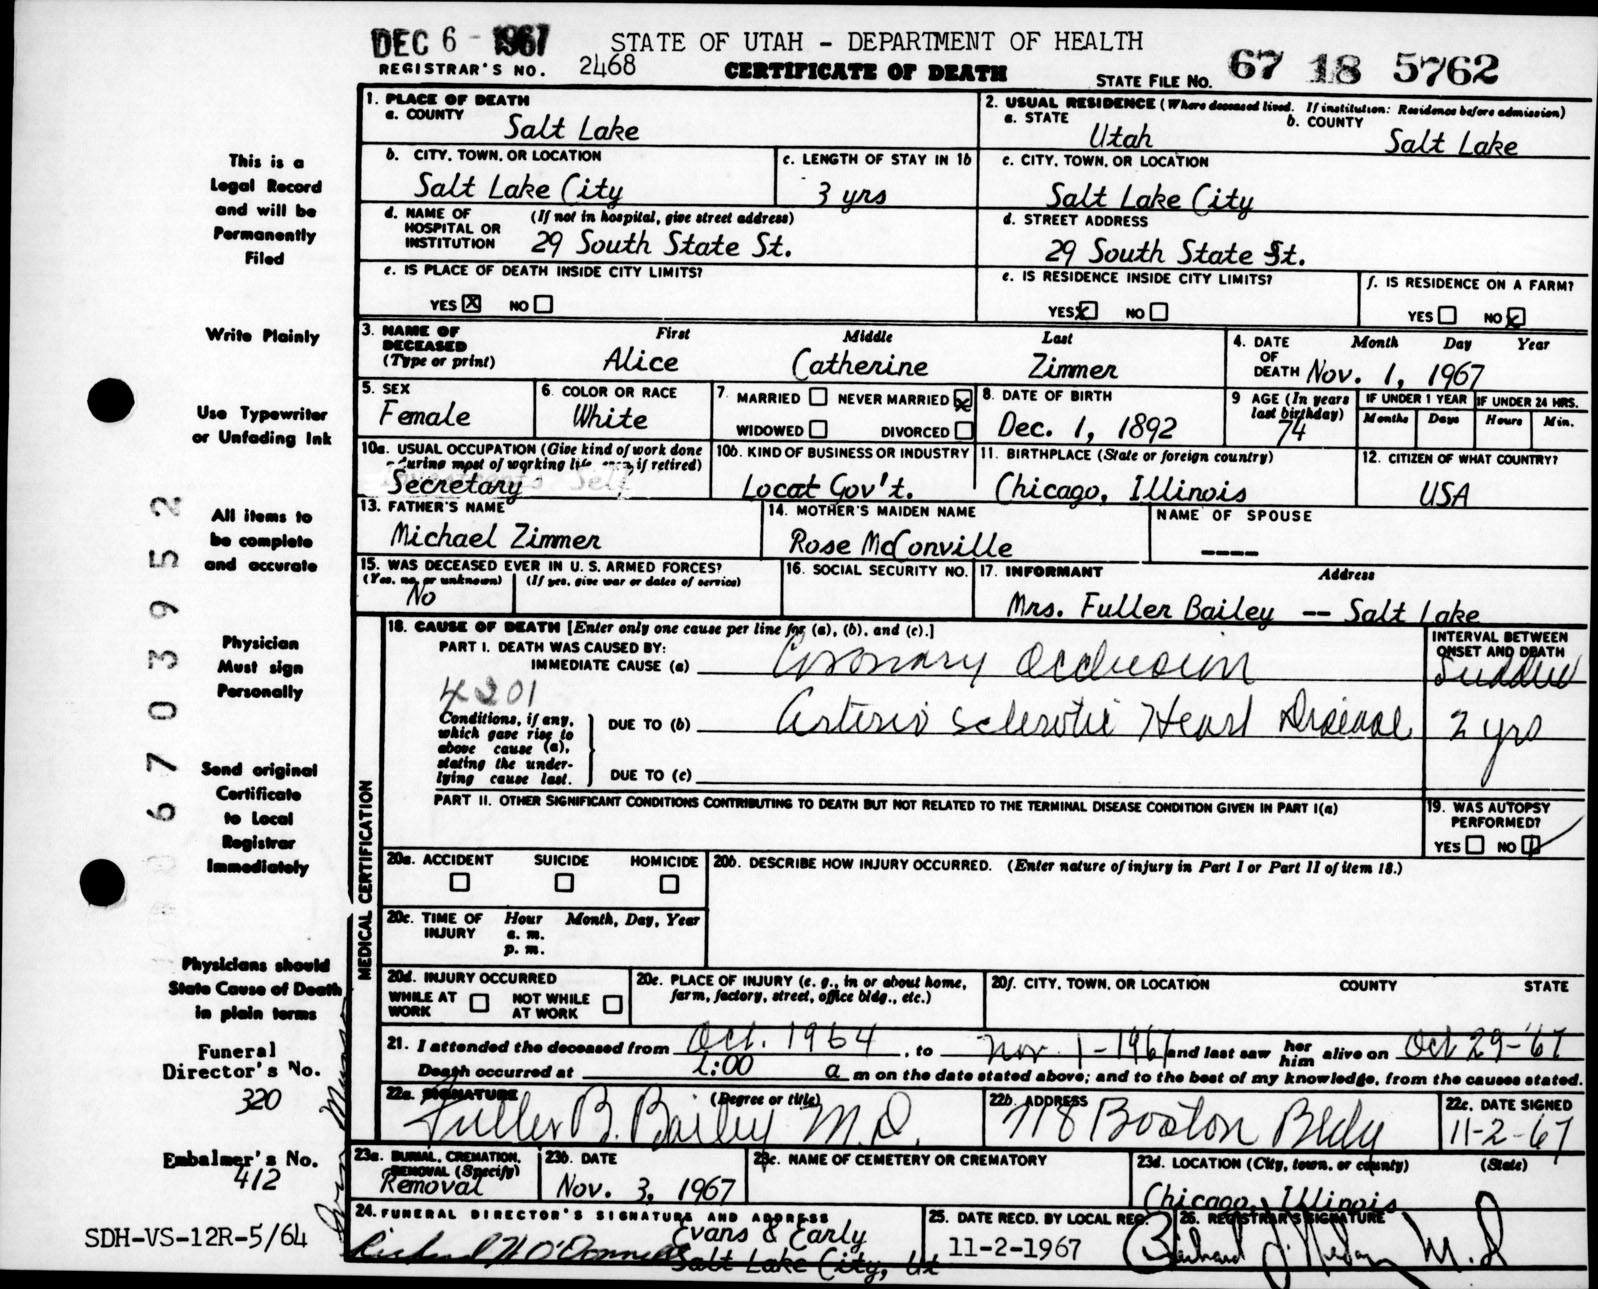 DEC 6 - 1967
STATE OF UTAH - DEPARTMENT OF HEALTH
REGISTRAR'S NO. 2468
CERTIFICATE OF DEATH
STATE FILE NO. 67 18 5762
This is a
Legal Record
and will be
Permanently
Filed
Write Plainly
Use Typewriter
or Unfading Ink
All items to
be complete
and accurate
Physician
Must sign
Personally
Send original
Certificate
to Local
Registrar
Immediately
Physicians should
State Cause of Death
in plain terms
Funeral
Director's No.
320
Embalmer's No.
412
SDH-VS-12R-5/64
6703952
1. PLACE OF DEATH
a. COUNTY
Salt Lake
2. USUAL RESIDENCE (Where deceased lived. If institution: Residence before admission)
a. STATE
Utah
b. COUNTY
Salt Lake
b. CITY, TOWN, OR LOCATION
Salt Lake City
c. LENGTH OF STAY IN 1b
3 yrs
c. CITY, TOWN, OR LOCATION
Salt Lake City
d. NAME OF (If not in hospital, give street address)
HOSPITAL OR
INSTITUTION
29 South State St.
d. STREET ADDRESS
29 South State St.
e. IS PLACE OF DEATH INSIDE CITY LIMITS?
YES X NO
e. IS RESIDENCE INSIDE CITY LIMITS?
YES X NO
f. IS RESIDENCE ON A FARM?
YES NO X
3. NAME OF
DECEASED
(Type or print)
First Middle Last
Alice Catherine Zimmer
4. DATE
OF
DEATH
Month Day Year
Nov. 1, 1967
5. SEX
Female
6. COLOR OR RACE
White
7. MARRIED NEVER MARRIED X
WIDOWED DIVORCED
8. DATE OF BIRTH
Dec. 1, 1892
9 AGE (In years
last birthday)
74
IF UNDER 1 YEAR
Months Days
IF UNDER 24 HRS.
Hours Min.
10a. USUAL OCCUPATION (Give kind of work done
during most of working life, even if retired)
Secretary
10b. KIND OF BUSINESS OR INDUSTRY
Locat Gov't.
11. BIRTHPLACE (State or foreign country)
Chicago, Illinois
12. CITIZEN OF WHAT COUNTRY?
USA
13. FATHER'S NAME
Michael Zimmer
14. MOTHER'S MAIDEN NAME
Rose McConville
NAME OF SPOUSE
----
15. WAS DECEASED EVER IN U. S. ARMED FORCES?
(Yes, no, or unknown) (If yes, give war or dates of service)
No
16. SOCIAL SECURITY NO.
17. INFORMANT Address
Mrs. Fuller Bailey -- Salt Lake
MEDICAL CERTIFICATION
18. CAUSE OF DEATH [Enter only one cause per line for (a), (b), and (c).]
PART I. DEATH WAS CAUSED BY:
IMMEDIATE CAUSE (a) Coronary Occlusion
INTERVAL BETWEEN
ONSET AND DEATH
Sudden
4201
Conditions, if any,
which gave rise to
above cause (a),
stating the under-
lying cause last.
DUE TO (b) Arterio sclerotic Heart Disease 2 yrs
DUE TO (c)
PART II. OTHER SIGNIFICANT CONDITIONS CONTRIBUTING TO DEATH BUT NOT RELATED TO THE TERMINAL DISEASE CONDITION GIVEN IN PART I(a)
19. WAS AUTOPSY
PERFORMED?
YES NO
20a. ACCIDENT SUICIDE HOMICIDE
20b. DESCRIBE HOW INJURY OCCURRED. (Enter nature of injury in Part I or Part II of item 18.)
20c. TIME OF Hour Month, Day, Year
INJURY a. m.
p. m.
20d. INJURY OCCURRED
WHILE AT
WORK
NOT WHILE
AT WORK
20e. PLACE OF INJURY (e. g., in or about home,
farm, factory, street, office bldg., etc.)
20f. CITY, TOWN, OR LOCATION COUNTY STATE
21. I attended the deceased from Oct. 1964, to Nov. 1-1967 and last saw her him alive on Oct 29-67
Death occurred at 1:00 a m on the date stated above; and to the best of my knowledge, from the causes stated.
22a. SIGNATURE (Degree or title)
Fuller B. Bailey M.D.
22b. ADDRESS
718 Boston Bldg
22c. DATE SIGNED
11-2-67
23a. BURIAL, CREMATION,
REMOVAL (Specify)
Removal
23b. DATE
Nov. 3, 1967
23c. NAME OF CEMETERY OR CREMATORY
23d. LOCATION (City, town, or county) (State)
Chicago, Illinois
24. FUNERAL DIRECTOR'S SIGNATURE AND ADDRESS
Evans & Early
Richard H O'Donnell Salt Lake City, Ut
25. DATE RECD. BY LOCAL REG.
11-2-1967
26. REGISTRAR'S SIGNATURE
M.D